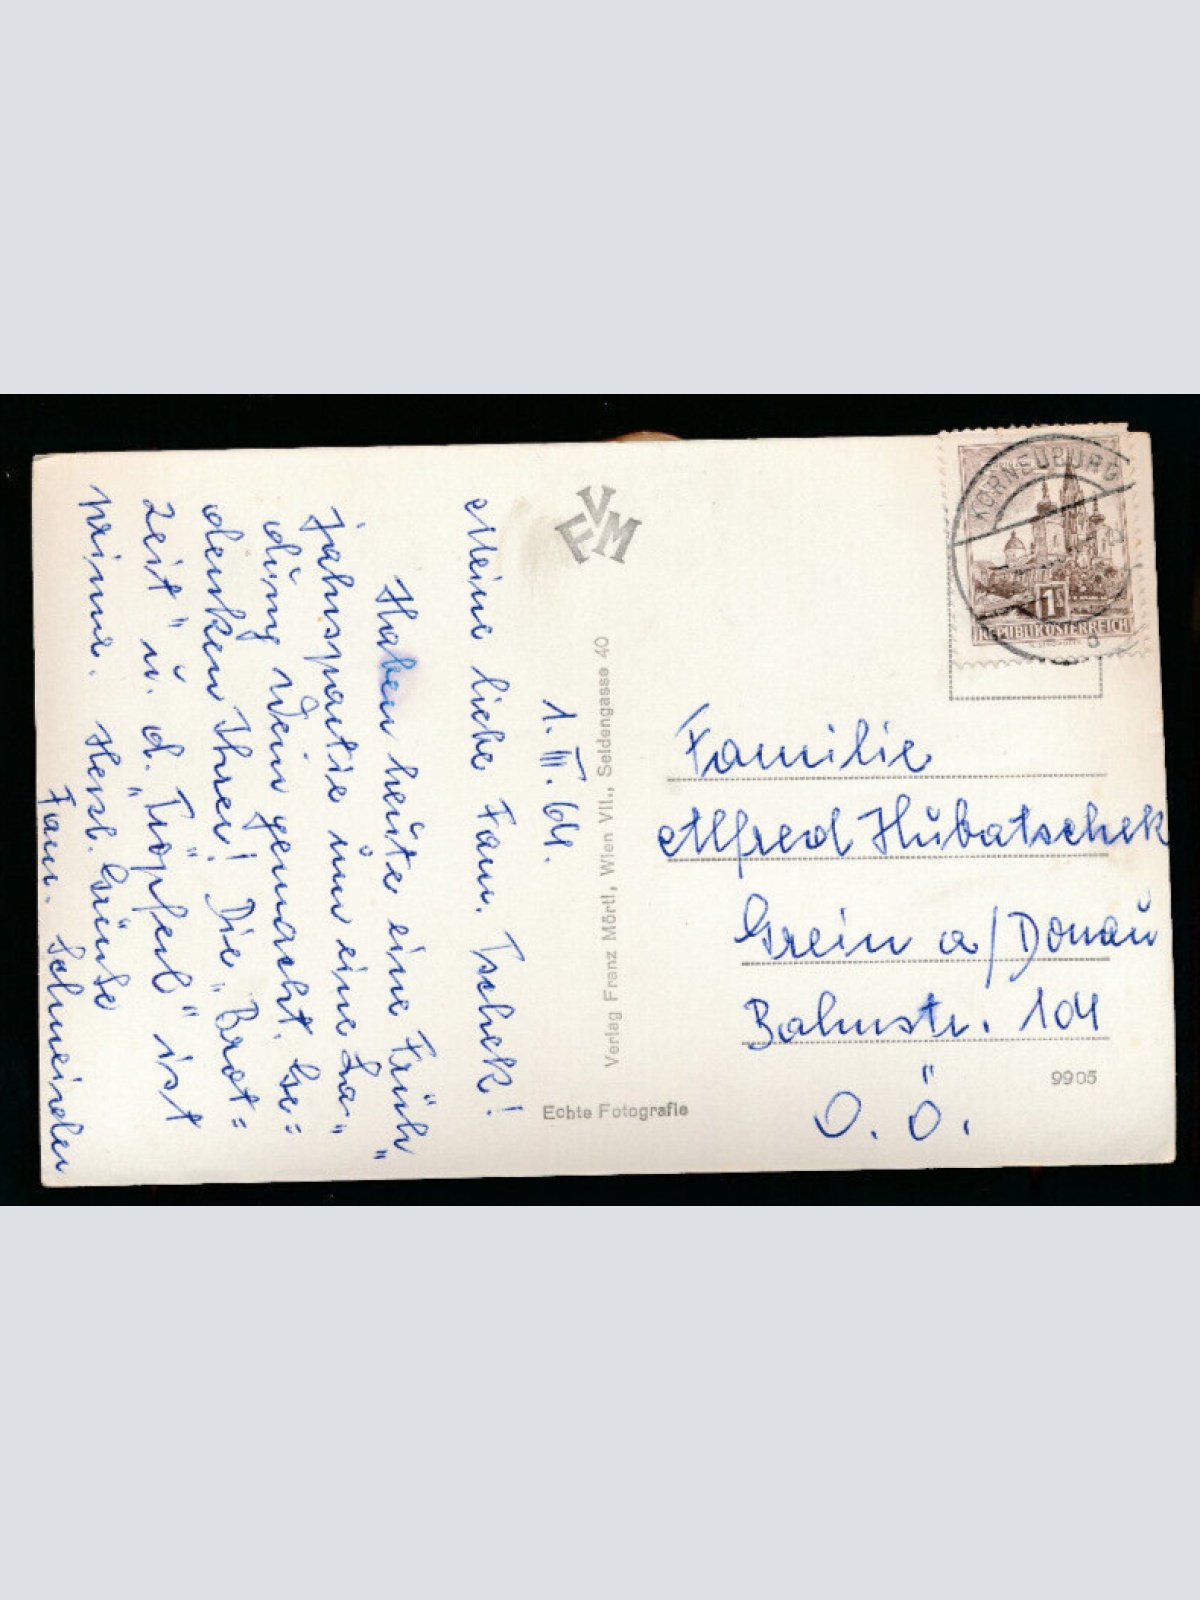 1. III. 64.
Meine liebe Fam. Tschek!
Haben heute eine „Früh
jahrspartie um eine „La
dung Wein gemacht. Ge=
denken Ihrer! Die „Brot=
zeit" u. d. „Tröpferl" ist
prima. Herzl. Grüße
Fam. Schneider
FVM
Verlag Franz Mörtl, Wien VII., Seidengasse 40
Echte Fotografie
KORNEUBURG
1S
REPUBLIK ÖSTERREICH
Familie
Alfred Hubatschek
Grein a/Donau
Bahnstr. 104
O. Ö.
9905